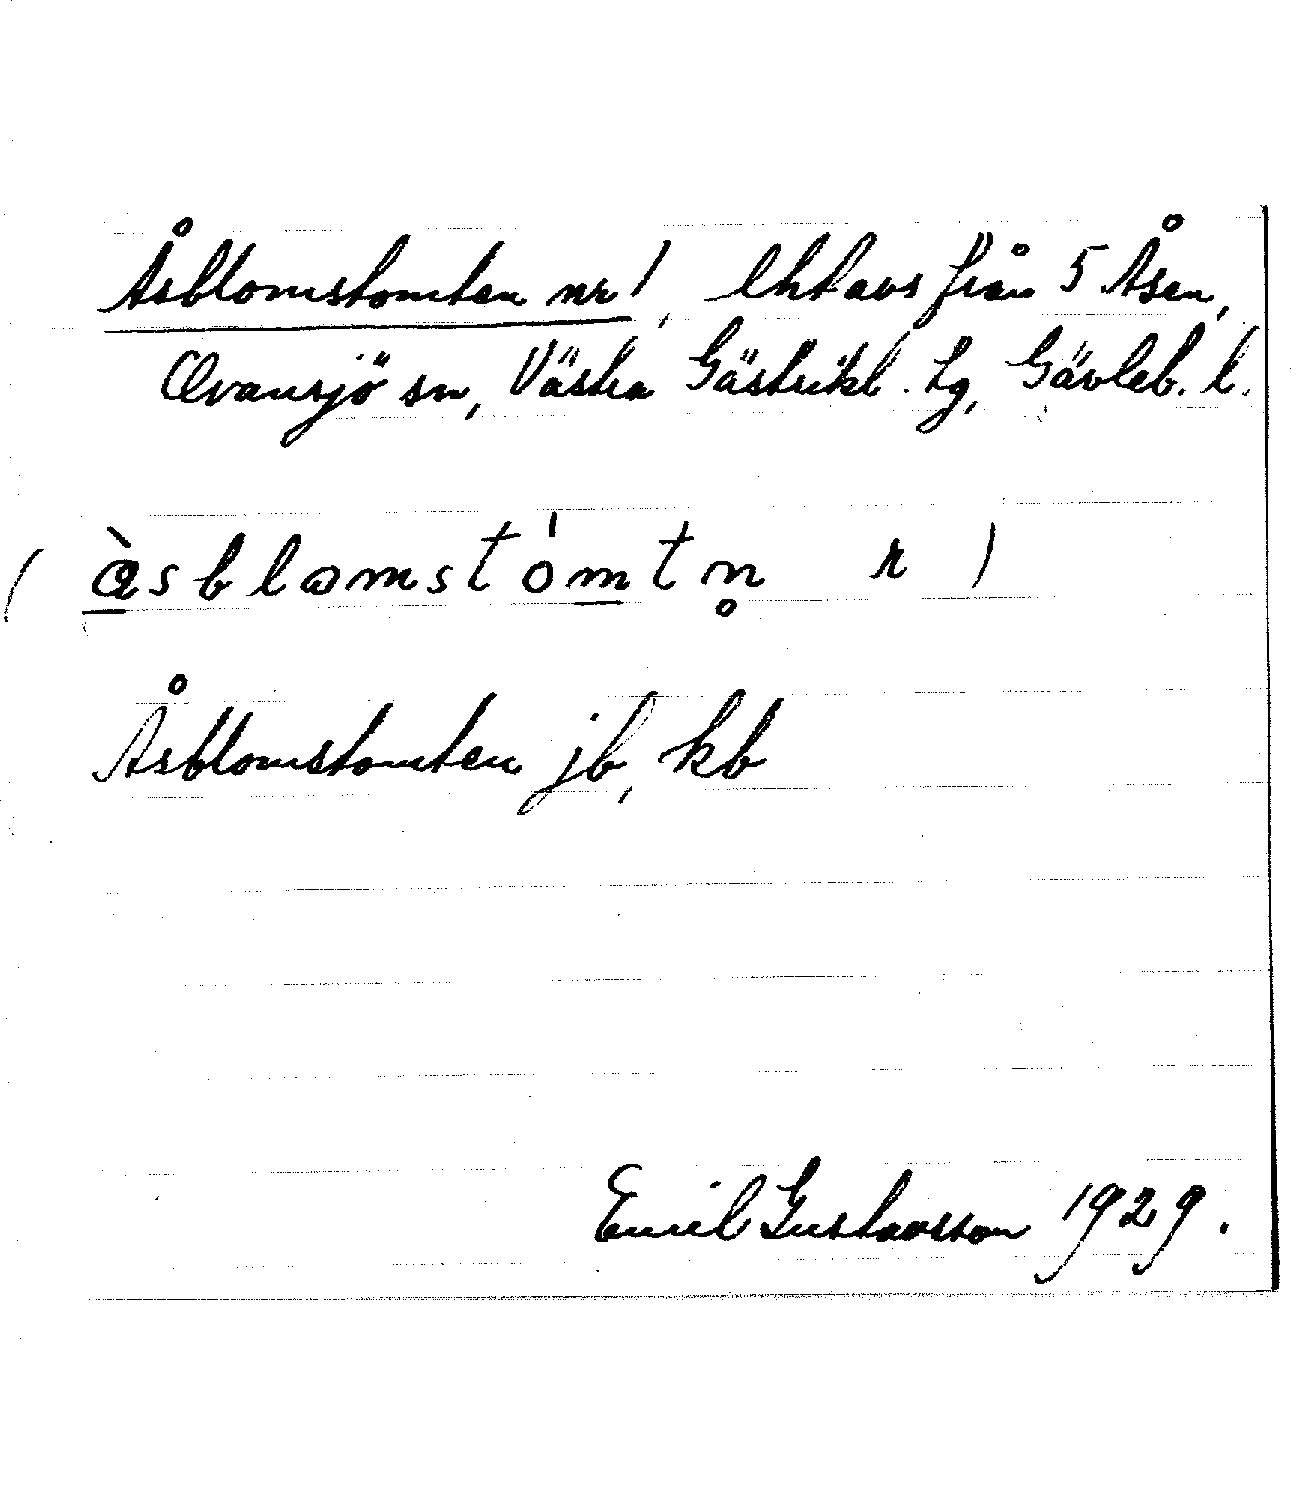 Åsblomstomten nr 1, lht avs från 5 Åsen,
Ovansjö sn, Västra Gästrikl. tg, Gävleb. l.
( åsblomstómtn̥ r )
Åsblomstomten jb, kb
Emil Gustavsson 1929.